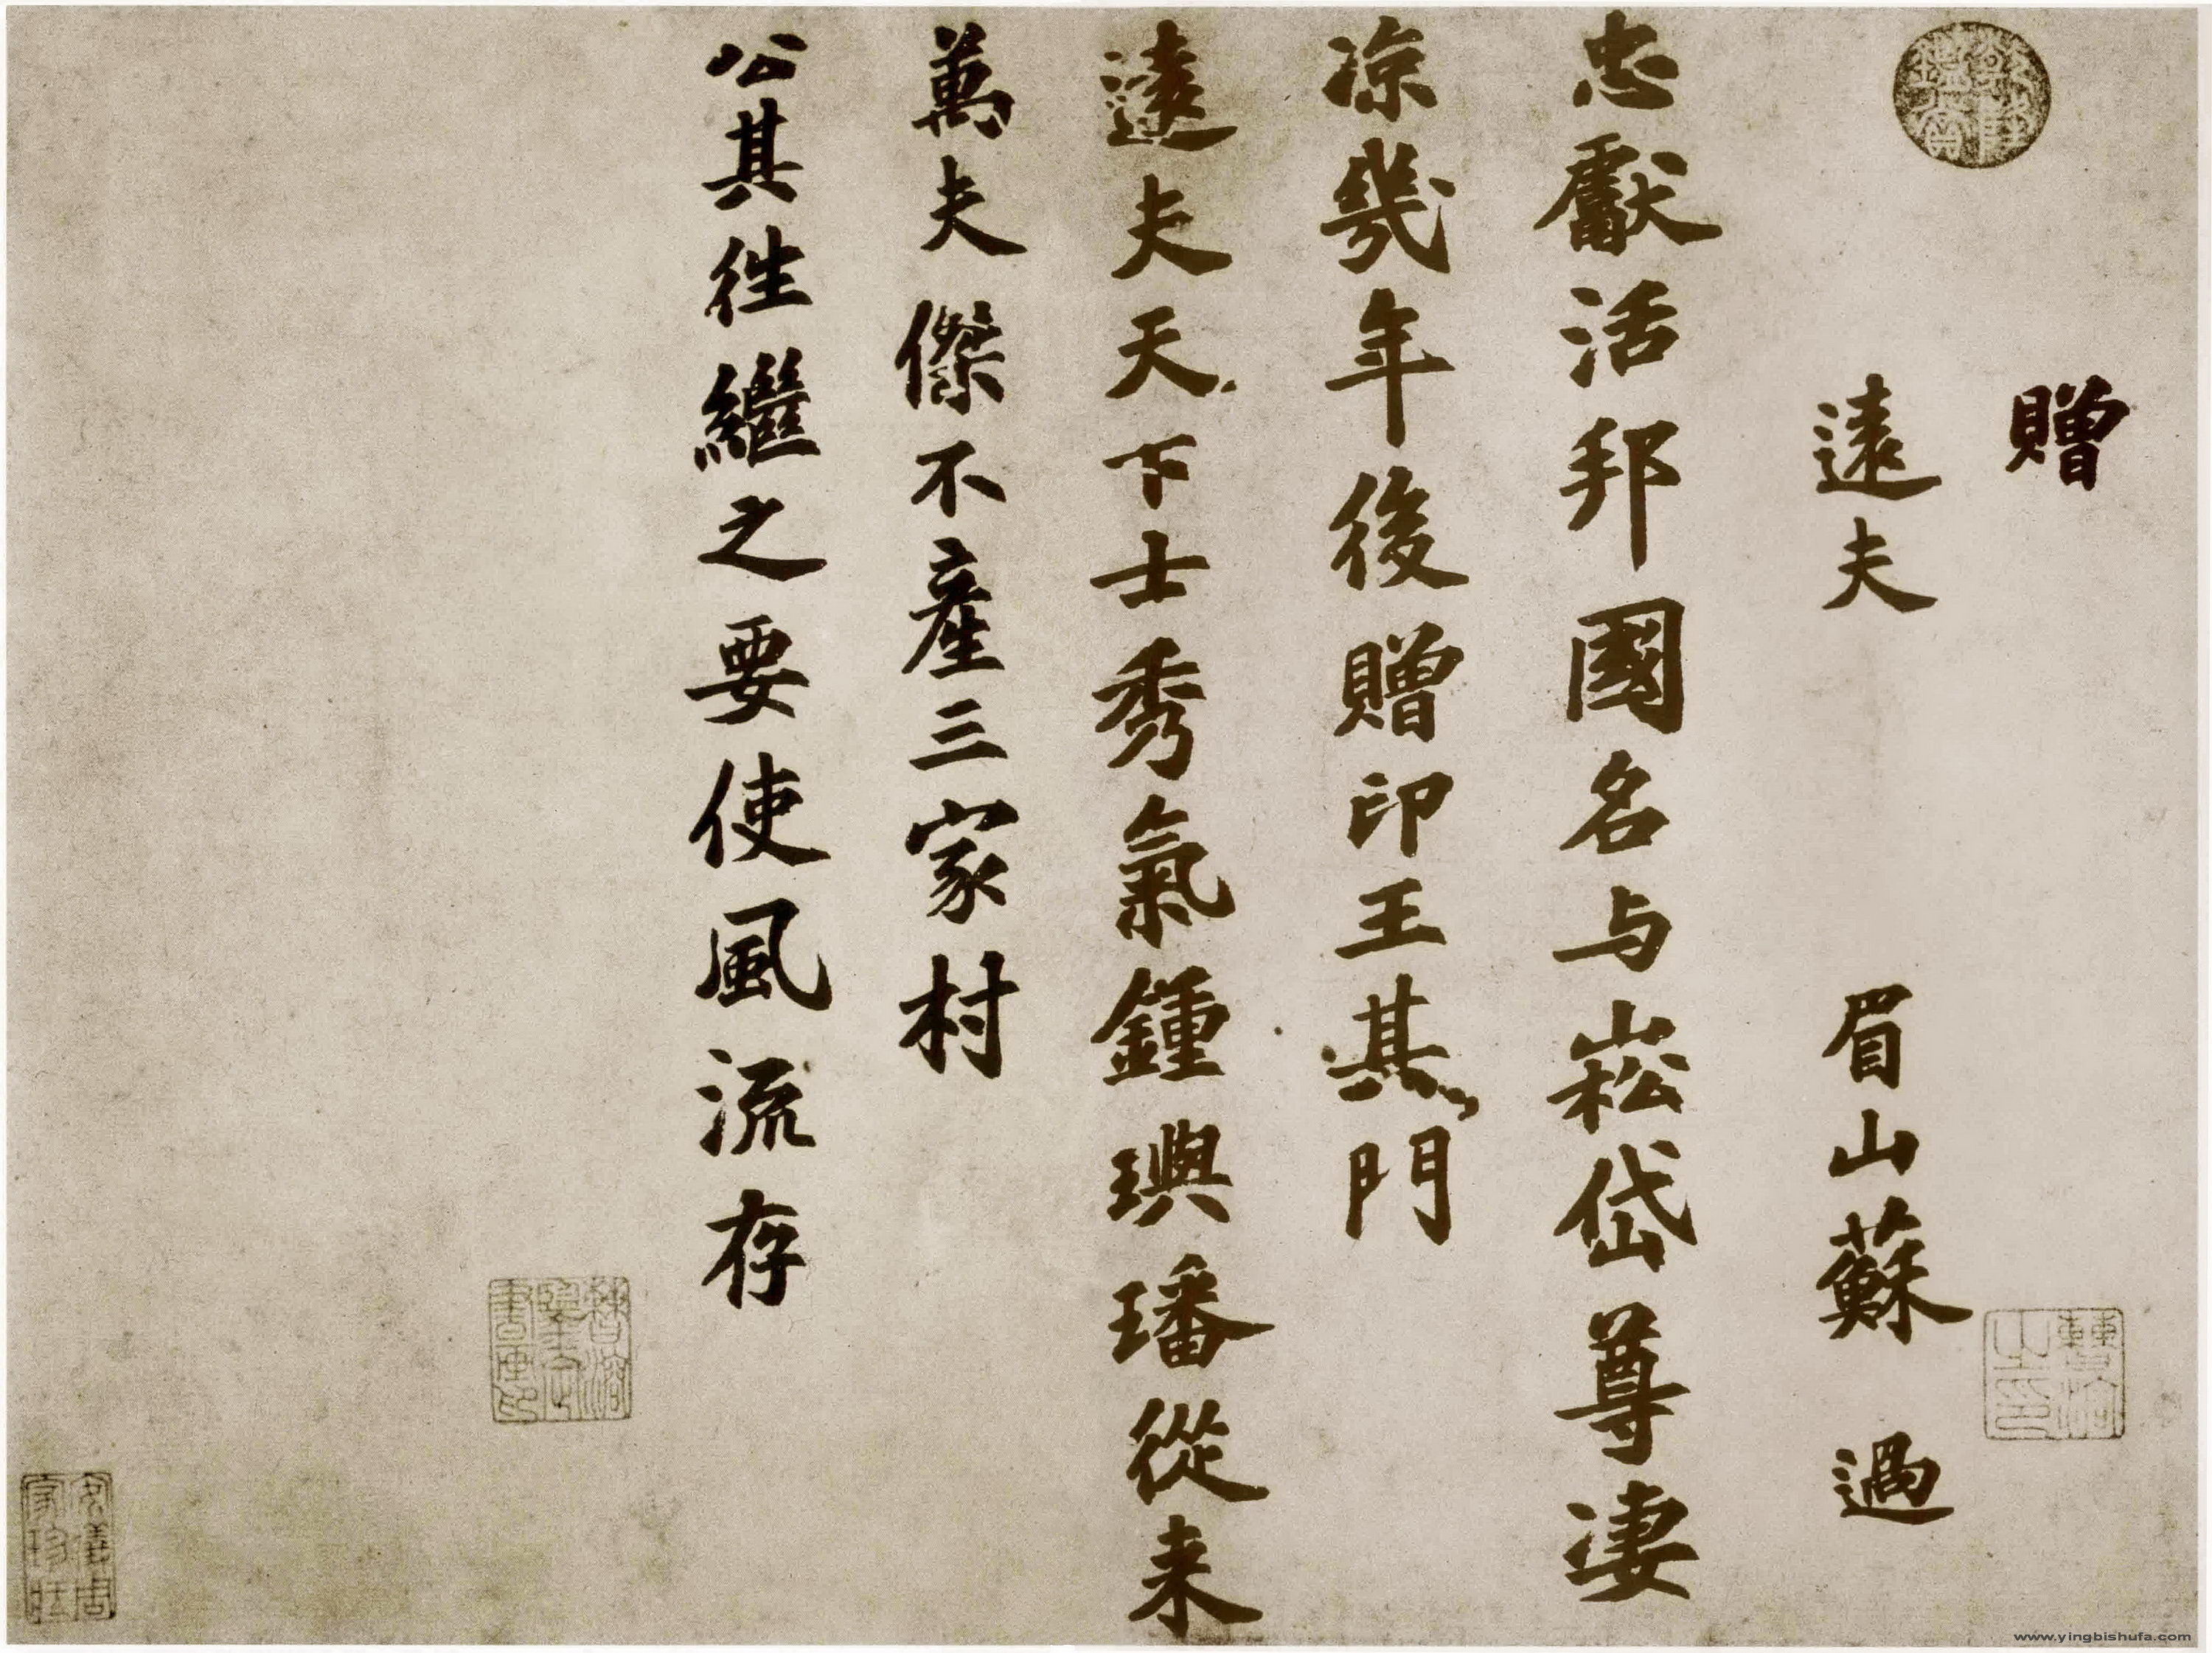 贈
遠夫　眉山蘇　過
忠獻活邦國名与崧岱尊淒
涼幾年後贈印王其門
遠夫天下士秀氣鍾璵璠從来
萬夫傑不產三家村
公其徃繼之要使風流存
乾隆鑑賞
安儀周家珍藏
www.yingbishufa.com